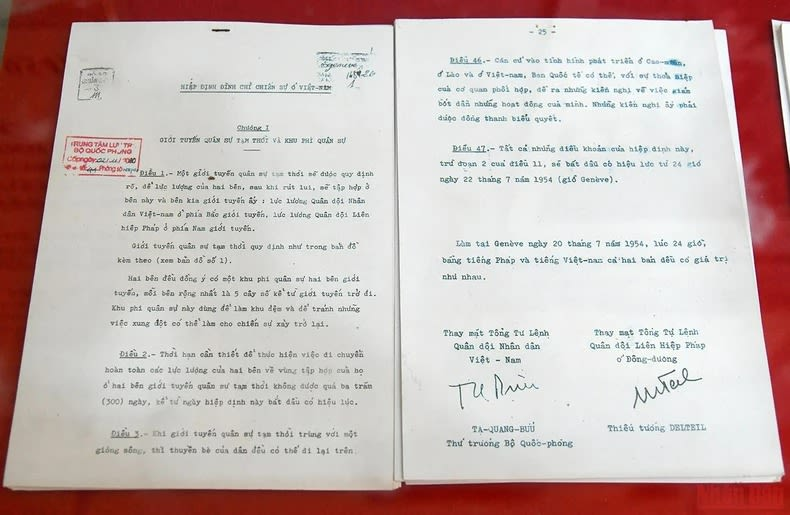 HIỆP ĐỊNH ĐÌNH CHỈ CHIẾN SỰ Ở VIỆT-NAM
Chương I
GIỚI TUYẾN QUÂN SỰ TẠM THỜI VÀ KHU PHI QUÂN SỰ
TRUNG TÂM LƯU TRỮ
BỘ QUỐC PHÒNG
Điều 1.- Một giới tuyến quân sự tạm thời sẽ được quy định
rõ, để lực lượng của hai bên, sau khi rút lui, sẽ tập hợp ở
bên này và bên kia giới tuyến ấy : lực lượng Quân đội Nhân
dân Việt-nam ở phía Bắc giới tuyến, lực lượng Quân đội Liên
hiệp Pháp ở phía Nam giới tuyến.
Giới tuyến quân sự tạm thời quy định như trong bản đồ
kèm theo (xem bản đồ số 1).
Hai bên đều đồng ý có một khu phi quân sự hai bên giới
tuyến, mỗi bên rộng nhất là 5 cây số kể từ giới tuyến trở đi.
Khu phi quân sự này dùng để làm khu đệm và để tránh những
việc xung đột có thể làm cho chiến sự xảy trở lại.
Điều 2.- Thời hạn cần thiết để thực hiện việc di chuyển
hoàn toàn các lực lượng của hai bên về vùng tập hợp của họ
ở hai bên giới tuyến quân sự tạm thời không được quá ba trăm
(300) ngày, kể từ ngày hiệp định này bắt đầu có hiệu lực.
Điều 3.- Khi giới tuyến quân sự tạm thời trùng với một
giòng sông, thì thuyền bè của dân đều có thể đi lại trên
- 25 -
Điều 46.- Căn cứ vào tình hình phát triển ở Cao-mên,
ở Lào và ở Việt-nam, Ban Quốc tế có thể, với sự thoả hiệp
của cơ quan phối hợp, đề ra những kiến nghị về việc giảm
bớt dần những hoạt động của mình. Những kiến nghị ấy phải
được đồng thanh biểu quyết.
Điều 47.- Tất cả những điều khoản của hiệp định này,
trừ đoạn 2 của điều 11, sẽ bắt đầu có hiệu lực từ 24 giờ
ngày 22 tháng 7 năm 1954 (giờ Genève).
Làm tại Genève ngày 20 tháng 7 năm 1954, lúc 24 giờ,
bằng tiếng Pháp và tiếng Việt-nam cả hai bản đều có giá trị
như nhau.
Thay mặt Tổng Tư Lệnh
Quân đội Nhân dân
Việt - Nam
Thay mặt Tổng Tư Lệnh
Quân đội Liên Hiệp Pháp
ở Đông-dương
TẠ-QUANG-BỬU
Thứ trưởng Bộ Quốc-phòng
Thiếu tướng DELTEIL